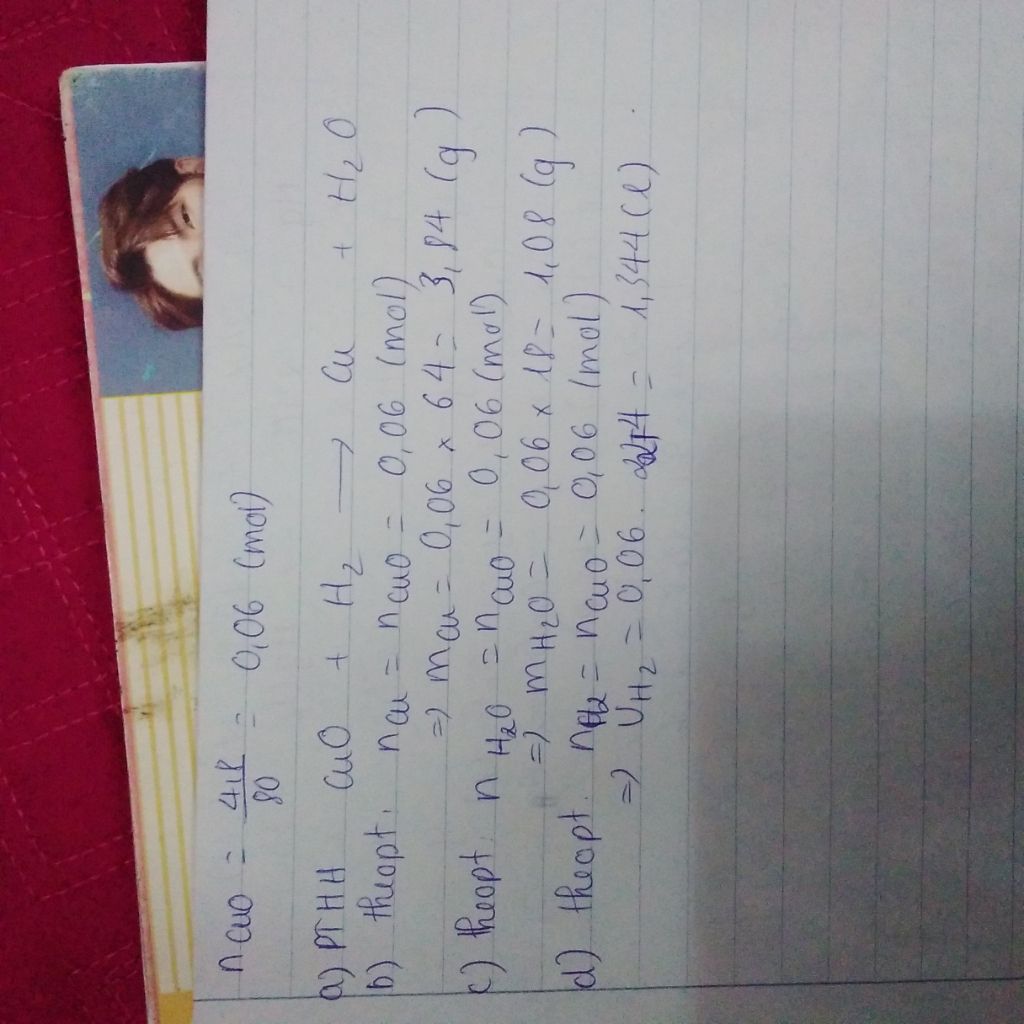 nCuO = 4,8/80 = 0,06 (mol)
a) PTHH CuO + H2 → Cu + H2O
b) theo pt. nCu = nCuO = 0,06 (mol)
=> mCu = 0,06 × 64 = 3,84 (g)
c) theo pt. nH2O = nCuO = 0,06 (mol)
=> mH2O = 0,06 × 18 = 1,08 (g)
d) theo pt. nH2 = nCuO = 0,06 (mol)
=> VH2 = 0,06. 22,4 = 1,344 (l).